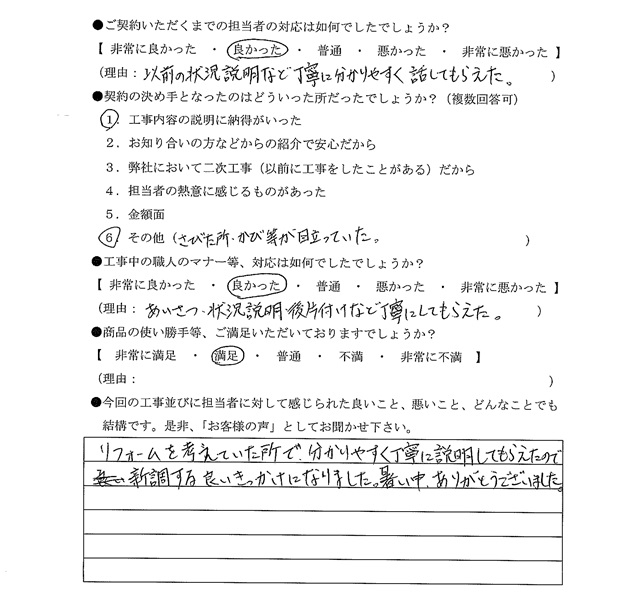 ●ご契約いただくまでの担当者の対応は如何でしたでしょうか？
【 非常に良かった ・ 良かった ・ 普通 ・ 悪かった ・ 非常に悪かった 】
（理由：以前の状況説明など丁寧に分かりやすく話してもらえた。）
●契約の決め手となったのはどういった所だったでしょうか？（複数回答可）
1．工事内容の説明に納得がいった
2．お知り合いの方などからの紹介で安心だから
3．弊社において二次工事（以前に工事をしたことがある）だから
4．担当者の熱意に感じるものがあった
5．金額面
6．その他（さびた所・かび等が目立っていた。）
●工事中の職人のマナー等、対応は如何でしたでしょうか？
【 非常に良かった ・ 良かった ・ 普通 ・ 悪かった ・ 非常に悪かった 】
（理由：あいさつ・状況説明・後片付けなど丁寧にしてもらえた。）
●商品の使い勝手等、ご満足いただいておりますでしょうか？
【 非常に満足 ・ 満足 ・ 普通 ・ 不満 ・ 非常に不満 】
（理由：）
●今回の工事並びに担当者に対して感じられた良いこと、悪いこと、どんなことでも
結構です。是非、「お客様の声」としてお聞かせ下さい。
リフォームを考えていた所で、分かりやすく丁寧に説明してもらえたので
新調する良いきっかけになりました。暑い中、ありがとうございました。